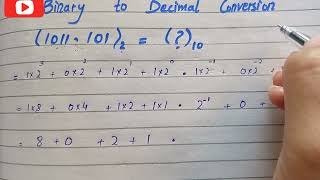 Binary to Decimal Conversion
(1011.101)₂ = (?)₁₀
= 1×2³ + 0×2² + 1×2¹ + 1×2⁰ . 1×2⁻¹ + 0×2⁻²
= 1×8 + 0×4 + 1×2 + 1×1 . 2⁻¹ + 0 +
= 8 + 0 + 2 + 1 .